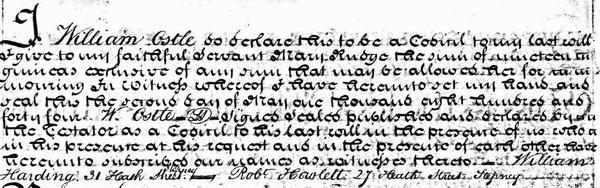 I William Ostle do declare this to be a Codicil to my last will
I give to my faithful Servant Mary Rudge the sum of nineteen
guineas exclusive of any sum that may be allowed her for
mourning In Witness whereof I have hereunto set my hand and
seal this the second day of May one thousand eight hundred and
forty four W. Ostle Signed sealed published and declared by
the Testator as a Codicil to his last will in the presence of us who
in his presence at his request and in the presence of each other have
hereunto subscribed our names as witnesses thereto — William
Harding 31 Heath Street Stepney — Robt Hawlett 27 Heath Street Stepney